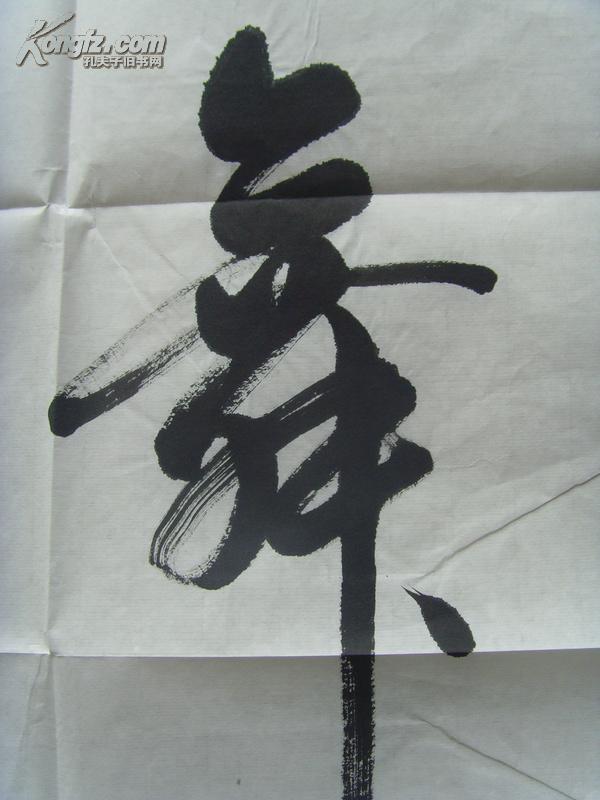 Kongfz.com
孔夫子旧书网
舞